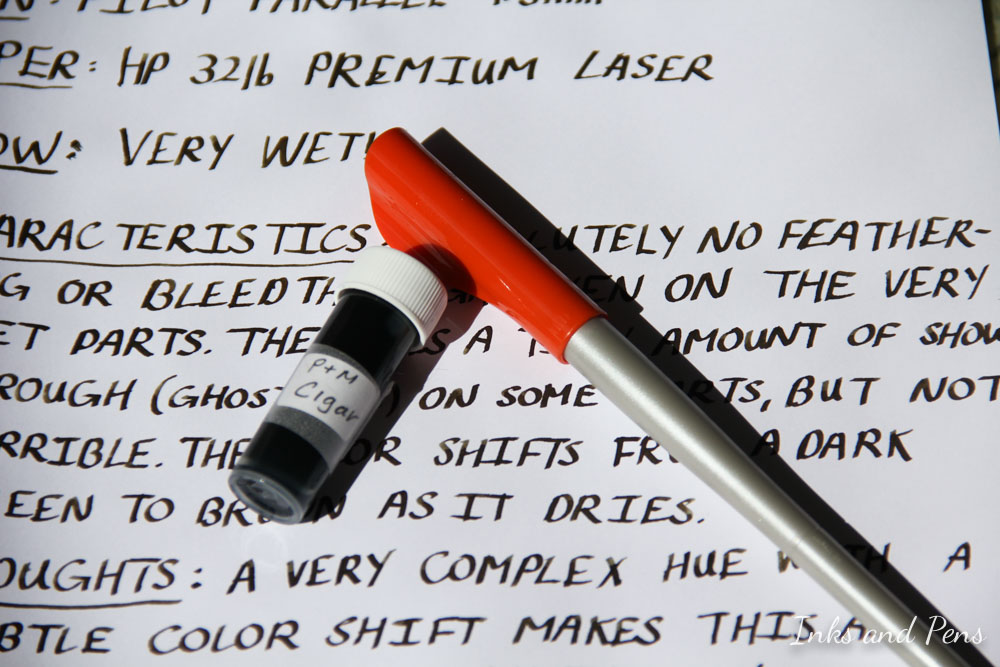 N: PILOT PARALLEL
PER: HP 32lb PREMIUM LASER
OW: VERY WET!
ARACTERISTICS: LUTELY NO FEATHER-
G OR BLEEDTH EN ON THE VERY
ET PARTS. THE S A AMOUNT OF SHOW
ROUGH (GHOST ) ON SOME RTS, BUT NOT
RRIBLE. THE OR SHIFTS FR A DARK
EEN TO BROWN AS IT DRIES.
OUGHTS: A VERY COMPLEX HUE WITH A
BTLE COLOR SHIFT MAKES THIS A
P+M
Cigar
Inks and Pens